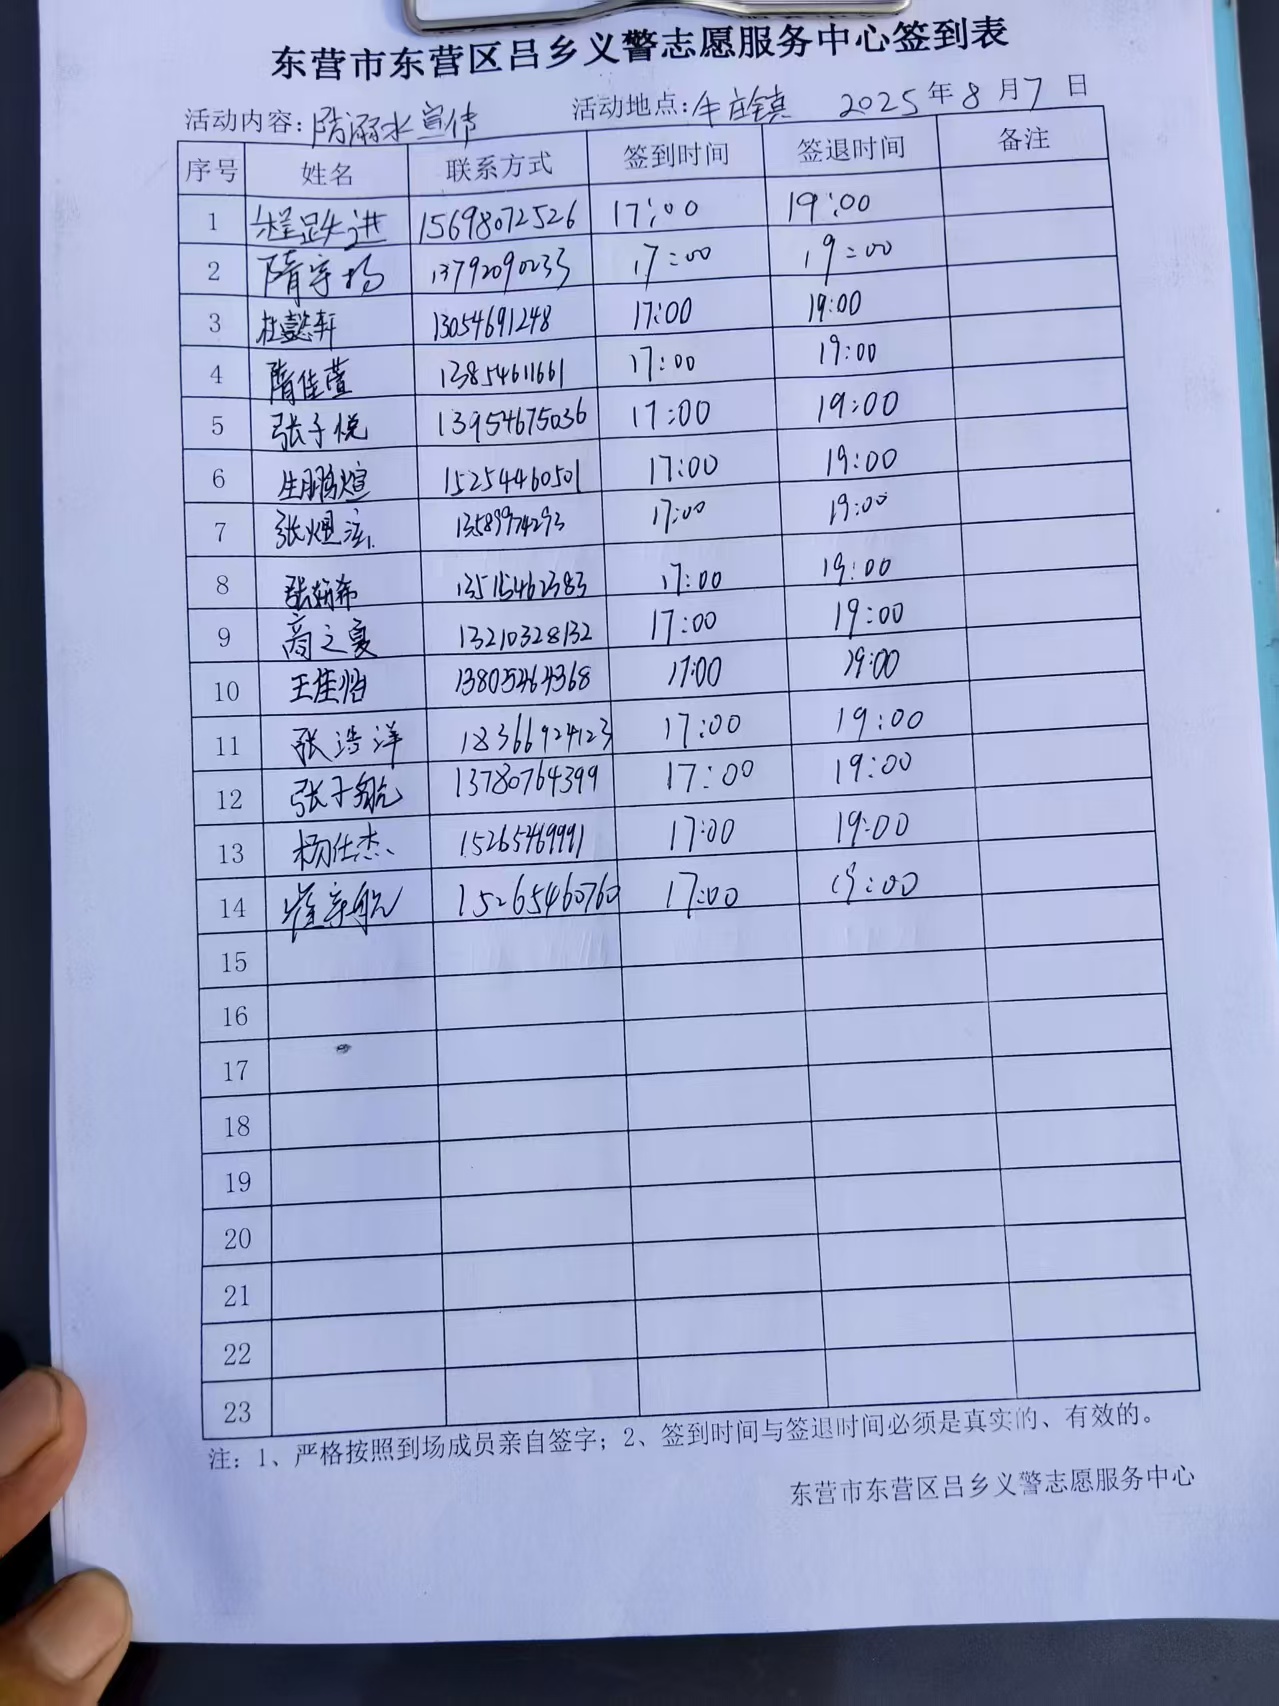 东营市东营区吕乡义警志愿服务中心签到表
活动内容: 防溺水宣传 活动地点: 牛庄镇 2025 年 8 月 7 日
序号 姓名 联系方式 签到时间 签退时间 备注
1 程跃进 15698072526 17:00 19:00
2 隋宇扬 13792090233 17:00 19:00
3 杜懿轩 13054691248 17:00 19:00
4 隋佳萱 13854611661 17:00 19:00
5 张子悦 13954675036 17:00 19:00
6 生鹏煊 15254460501 17:00 19:00
7 13589974293 17:00 19:00
8 13515462383 17:00 19:00
9 商之夏 13210328132 17:00 19:00
10 王佳怡 13805464368 17:00 19:00
11 张浩洋 18366924123 17:00 19:00
12 张子航 13780764399 17:00 19:00
13 杨仕杰 15265469991 17:00 19:00
14 15265460760 17:00 19:00
15
16
17
18
19
20
21
22
23
注: 1、严格按照到场成员亲自签字; 2、签到时间与签退时间必须是真实的、有效的。
东营市东营区吕乡义警志愿服务中心